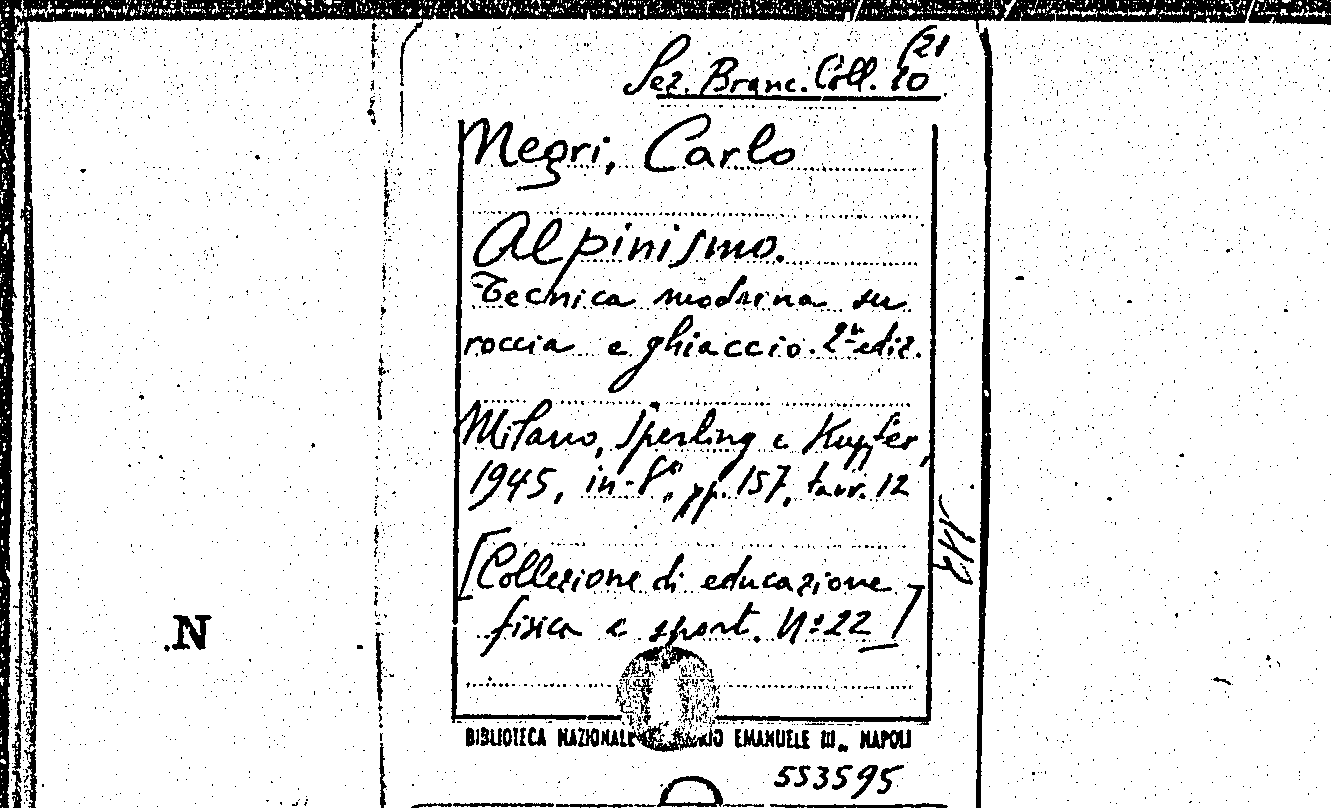 Sez. Branc. Coll. 10
(21
Negri, Carlo
Alpinismo.
Tecnica moderna su
roccia e ghiaccio. 2ª ediz.
Milano, Sperling e Kupfer,
1945, in-8°, pp. 157, tavv. 12
[Collezione di educazione
fisica e sport. Nº 22]
N
BIBLIOTECA NAZIONALE EMANUELE III„ NAPOLI
553595